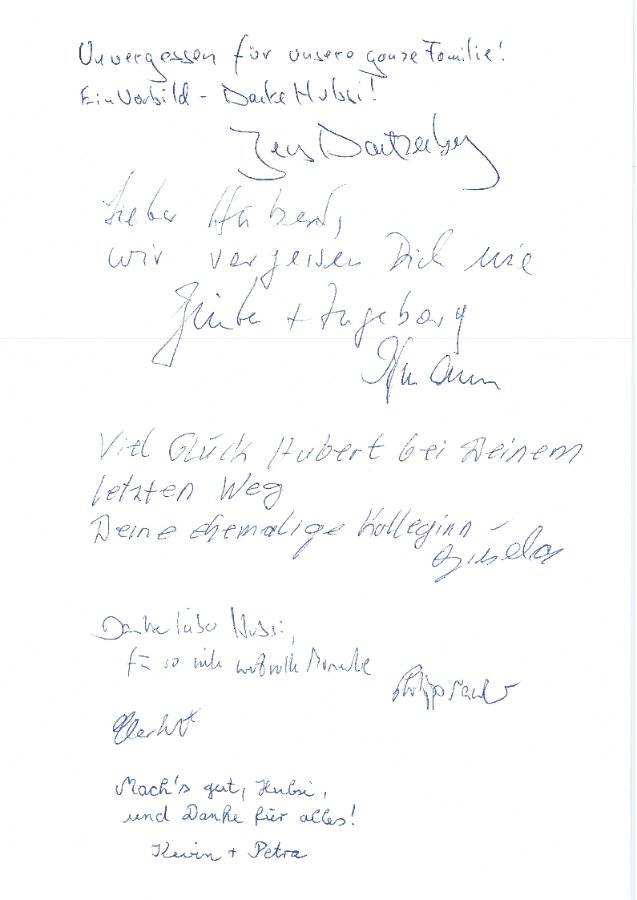 Unvergessen für unsere ganze Familie!
Ein Vorbild - Danke Hubsi!
Jens
Lieber Hubert,
wir vergessen Dich nie
+ Ingeborg
Viel Glück Hubert bei Deinem
letzten Weg
Deine ehemalige Kollegin
Gisela
Danke lieber Hubsi,
für so viele wertvolle Momente
Philipp
Mach's gut, Hubsi,
und Danke für alles!
Kevin + Petra